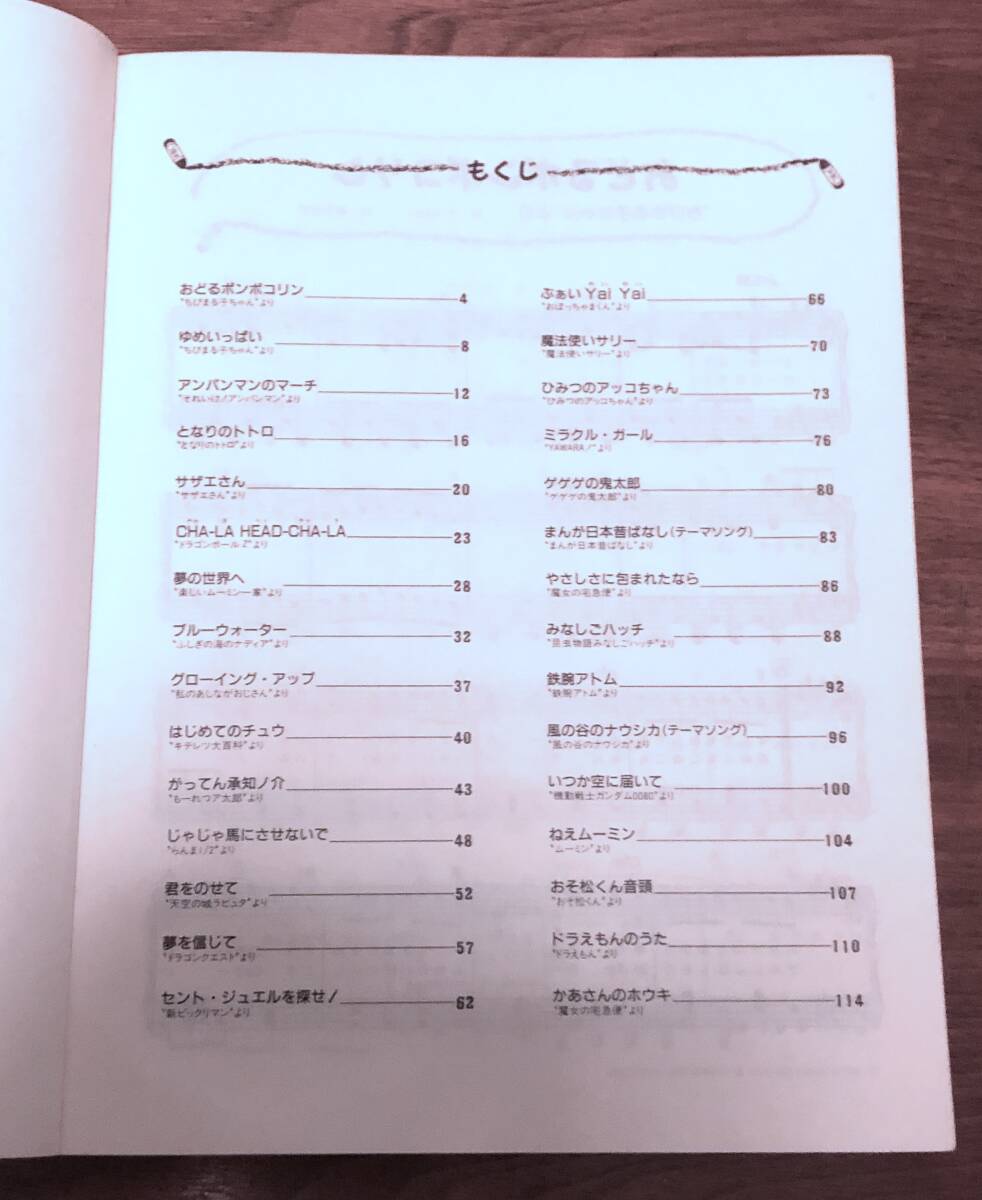 もくじ
おどるポンポコリン 4
"ちびまる子ちゃん"より
ゆめいっぱい 8
"ちびまる子ちゃん"より
アンパンマンのマーチ 12
"それいけ!アンパンマン"より
となりのトトロ 16
"となりのトトロ"より
サザエさん 20
"サザエさん"より
CHA-LA HEAD-CHA-LA 23
"ドラゴンボールZ"より
夢の世界へ 28
"楽しいムーミン一家"より
ブルーウォーター 32
"ふしぎの海のナディア"より
グローイング・アップ 37
"私のあしながおじさん"より
はじめてのチュウ 40
"キテレツ大百科"より
がってん承知ノ介 43
"もーれつア太郎"より
じゃじゃ馬にさせないで 48
"らんま1/2"より
君をのせて 52
"天空の城ラピュタ"より
夢を信じて 57
"ドラゴンクエスト"より
セント・ジュエルを探せ! 62
"新ビックリマン"より
ぶぁい Yai Yai 66
"おぼっちゃまくん"より
魔法使いサリー 70
"魔法使いサリー"より
ひみつのアッコちゃん 73
"ひみつのアッコちゃん"より
ミラクル・ガール 76
"YAWARA!"より
ゲゲゲの鬼太郎 80
"ゲゲゲの鬼太郎"より
まんが日本昔ばなし(テーマソング) 83
"まんが日本昔ばなし"より
やさしさに包まれたなら 86
"魔女の宅急便"より
みなしごハッチ 88
"昆虫物語みなしごハッチ"より
鉄腕アトム 92
"鉄腕アトム"より
風の谷のナウシカ(テーマソング) 96
"風の谷のナウシカ"より
いつか空に届いて 100
"機動戦士ガンダム0080"より
ねえムーミン 104
"ムーミン"より
おそ松くん音頭 107
"おそ松くん"より
ドラえもんのうた 110
"ドラえもん"より
かあさんのホウキ 114
"魔女の宅急便"より